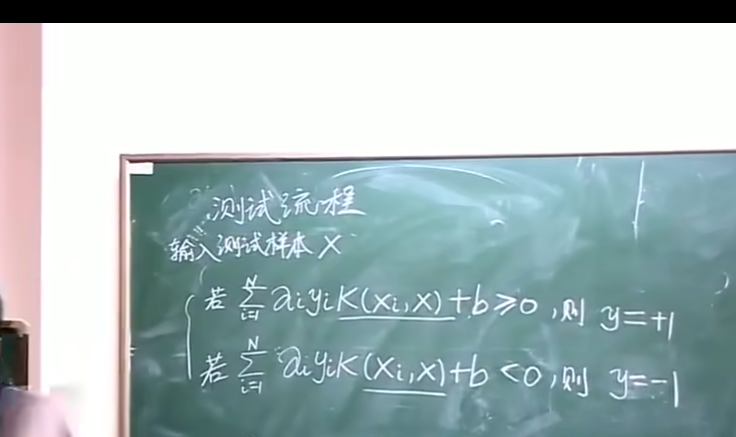 测试流程
输入测试样本 X
若 ∑_{i=1}^{N} αiyiK(Xi,X)+b≥0,则 y=+1
若 ∑_{i=1}^{N} αiyiK(Xi,X)+b<0,则 y=-1